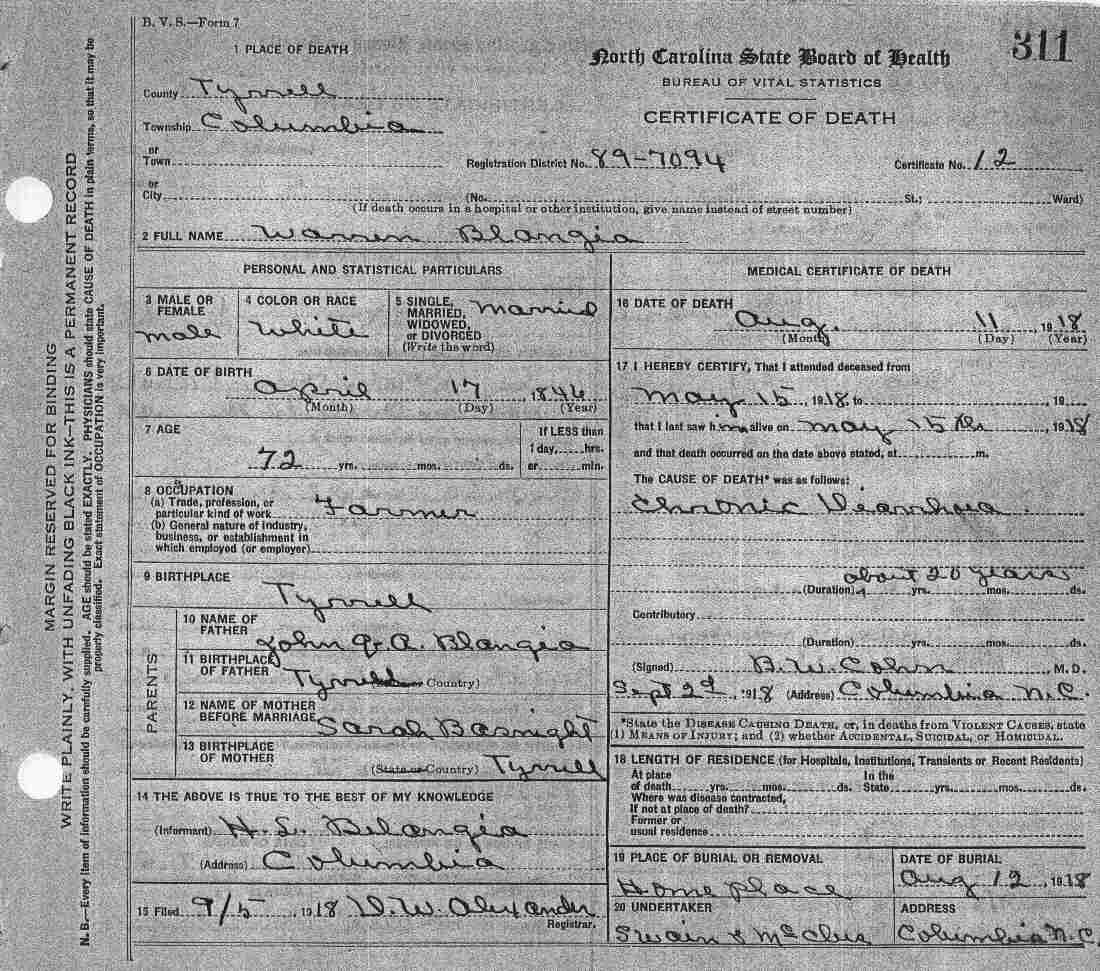 B. V. S.—Form 7
311
1 PLACE OF DEATH
North Carolina State Board of Health
BUREAU OF VITAL STATISTICS
CERTIFICATE OF DEATH
County Tyrrell
Township Columbia
or
Town
Registration District No. 89-7094
Certificate No. 12
or
City (No. St.; Ward)
(If death occurs in a hospital or other institution, give name instead of street number)
2 FULL NAME Warren Blangia
PERSONAL AND STATISTICAL PARTICULARS
3 MALE OR FEMALE male
4 COLOR OR RACE White
5 SINGLE, MARRIED, WIDOWED, or DIVORCED (Write the word) Married
6 DATE OF BIRTH April 17, 1846
(Month) (Day) (Year)
7 AGE
72 yrs. mos. ds.
If LESS than
1 day, hrs.
or min.
8 OCCUPATION
(a) Trade, profession, or
particular kind of work Farmer
(b) General nature of industry,
business, or establishment in
which employed (or employer)
9 BIRTHPLACE
Tyrrell
PARENTS
10 NAME OF FATHER John Q. A. Blangia
11 BIRTHPLACE OF FATHER Tyrrell Country)
12 NAME OF MOTHER BEFORE MARRIAGE Sarah Basnight
13 BIRTHPLACE OF MOTHER (State or Country) Tyrrell
14 THE ABOVE IS TRUE TO THE BEST OF MY KNOWLEDGE
(Informant) H. L. Belangia
(Address) Columbia
15 Filed 9/5, 1918 D. W. Alexander
Registrar.
MEDICAL CERTIFICATE OF DEATH
16 DATE OF DEATH
Aug. 11, 1918
(Month) (Day) (Year)
17 I HEREBY CERTIFY, That I attended deceased from
May 15, 1918, to , 19
that I last saw him alive on May 15th, 1918
and that death occurred on the date above stated, at m.
The CAUSE OF DEATH* was as follows:
Chronic Diarrhoea.
about 20 years
(Duration) yrs. mos. ds.
Contributory
(Duration) yrs. mos. ds.
(Signed) B. W. Cohn M. D.
Sept 2d, 1918 (Address) Columbia N.C.
*State the DISEASE CAUSING DEATH, or, in deaths from VIOLENT CAUSES, state
(1) MEANS OF INJURY; and (2) whether ACCIDENTAL, SUICIDAL, or HOMICIDAL.
18 LENGTH OF RESIDENCE (for Hospitals, Institutions, Transients or Recent Residents)
At place In the
of death yrs. mos. ds. State yrs. mos. ds.
Where was disease contracted,
If not at place of death?
Former or
usual residence
19 PLACE OF BURIAL OR REMOVAL
Home place
DATE OF BURIAL
Aug 12, 1918
20 UNDERTAKER
Swain & McClees
ADDRESS
Columbia N.C.
MARGIN RESERVED FOR BINDING
WRITE PLAINLY, WITH UNFADING BLACK INK—THIS IS A PERMANENT RECORD
N. B.—Every item of information should be carefully supplied. AGE should be stated EXACTLY. PHYSICIANS should state CAUSE OF DEATH in plain terms, so that it may be
properly classified. Exact statement of OCCUPATION is very important.